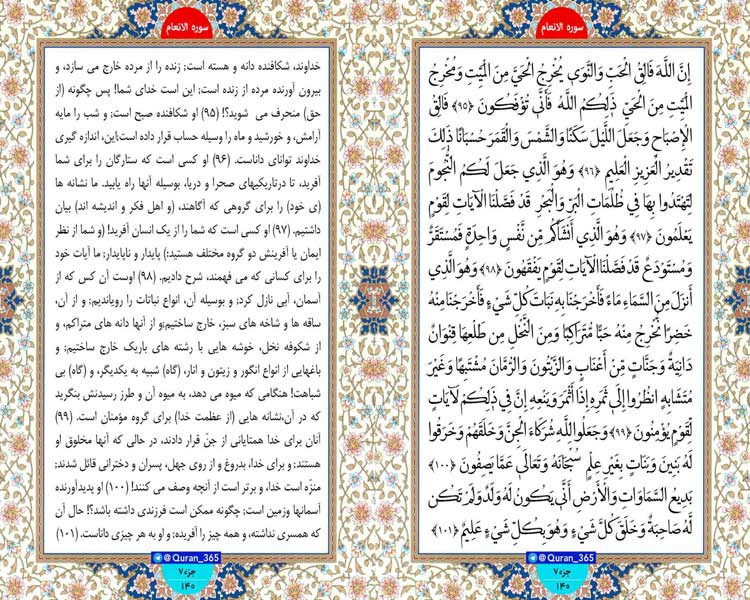 سوره الانعام
إِنَّ اللَّهَ فَالِقُ الْحَبِّ وَالنَّوَىٰ يُخْرِجُ الْحَيَّ مِنَ الْمَيِّتِ وَمُخْرِجُ
الْمَيِّتِ مِنَ الْحَيِّ ذَٰلِكُمُ اللَّهُ فَأَنَّىٰ تُؤْفَكُونَ ﴿۹۵﴾ فَالِقُ
الْإِصْبَاحِ وَجَعَلَ اللَّيْلَ سَكَنًا وَالشَّمْسَ وَالْقَمَرَ حُسْبَانًا ذَٰلِكَ
تَقْدِيرُ الْعَزِيزِ الْعَلِيمِ ﴿۹۶﴾ وَهُوَ الَّذِي جَعَلَ لَكُمُ النُّجُومَ
لِتَهْتَدُوا بِهَا فِي ظُلُمَاتِ الْبَرِّ وَالْبَحْرِ قَدْ فَصَّلْنَا الْآيَاتِ لِقَوْمٍ
يَعْلَمُونَ ﴿۹۷﴾ وَهُوَ الَّذِي أَنْشَأَكُمْ مِّن نَّفْسٍ وَاحِدَةٍ فَمُسْتَقَرٌّ
وَمُسْتَوْدَعٌ قَدْ فَصَّلْنَا الْآيَاتِ لِقَوْمٍ يَفْقَهُونَ ﴿۹۸﴾ وَهُوَ الَّذِي
أَنزَلَ مِنَ السَّمَاءِ مَاءً فَأَخْرَجْنَا بِهِ نَبَاتَ كُلِّ شَيْءٍ فَأَخْرَجْنَا مِنْهُ
خَضِرًا نُّخْرِجُ مِنْهُ حَبًّا مُّتَرَاكِبًا وَمِنَ النَّخْلِ مِن طَلْعِهَا قِنْوَانٌ
دَانِيَةٌ وَجَنَّاتٍ مِّنْ أَعْنَابٍ وَالزَّيْتُونَ وَالرُّمَّانَ مُشْتَبِهًا وَغَيْرَ
مُتَشَابِهٍ انظُرُوا إِلَىٰ ثَمَرِهِ إِذَا أَثْمَرَ وَيَنْعِهِ إِنَّ فِي ذَٰلِكُمْ لَآيَاتٍ
لِّقَوْمٍ يُؤْمِنُونَ ﴿۹۹﴾ وَجَعَلُوا لِلَّهِ شُرَكَاءَ الْجِنَّ وَخَلَقَهُمْ وَخَرَقُوا
لَهُ بَنِينَ وَبَنَاتٍ بِغَيْرِ عِلْمٍ سُبْحَانَهُ وَتَعَالَىٰ عَمَّا يَصِفُونَ ﴿۱۰۰﴾
بَدِيعُ السَّمَاوَاتِ وَالْأَرْضِ أَنَّىٰ يَكُونُ لَهُ وَلَدٌ وَلَمْ تَكُن
لَّهُ صَاحِبَةٌ وَخَلَقَ كُلَّ شَيْءٍ وَهُوَ بِكُلِّ شَيْءٍ عَلِيمٌ ﴿۱۰۱﴾
@Quran_365
جزء۷
۱۴۰
سوره الانعام
خداوند، شکافنده دانه و هسته است؛ زنده را از مرده خارج می سازد، و
بیرون آورنده مرده از زنده است؛ این است خدای شما! پس چگونه (از
حق) منحرف می شوید؟! (۹۵) او شکافنده صبح است؛ و شب را مایه
آرامش، و خورشید و ماه را وسیله حساب قرار داده است؛این، اندازه گیری
خداوند توانای داناست. (۹۶) او کسی است که ستارگان را برای شما
آفرید، تا درتاریکیهای صحرا و دریا، بوسیله آنها راه یابید. ما نشانه ها
(ی خود) را برای گروهی که آگاهند، (و اهل فکر و اندیشه اند) بیان
داشتیم. (۹۷) او کسی است که شما را از یک انسان آفرید! (و شما از نظر
ایمان یا آفرینش دو گروه مختلف هستید:) پایدار و ناپایدار؛ ما آیات خود
را برای کسانی که می فهمند، شرح دادیم. (۹۸) اوست آن کس که از
آسمان، آبی نازل کرد؛ و بوسیله آن، انواع نباتات را رویاندیم؛ و از آن،
ساقه ها و شاخه های سبز، خارج ساختیم؛و از آنها دانه های متراکم، و
از شکوفه نخل، خوشه هایی با رشته های باریک خارج ساختیم؛ و
باغهایی از انواع انگور و زیتون و انار، (گاه) شبیه به یکدیگر، و (گاه) بی
شباهت! هنگامی که میوه می دهد، به میوه آن و طرز رسیدنش بنگرید
که در آن،نشانه هایی (از عظمت خدا) برای گروه مؤمنان است. (۹۹)
آنان برای خدا همتایانی از جنّ قرار دادند، در حالی که آنها مخلوق او
هستند؛ و برای خدا، بدروغ و از روی جهل، پسران و دخترانی قائل شدند؛
منزّه است خدا، و برتر است از آنچه وصف می کنند! (۱۰۰) او پدیدآورنده
آسمانها وزمین است؛ چگونه ممکن است فرزندی داشته باشد؟! حال آن
که همسری نداشته، و همه چیز را آفریده؛ و او به هر چیزی داناست. (۱۰۱)
@Quran_365
جزء۷
۱۴۰